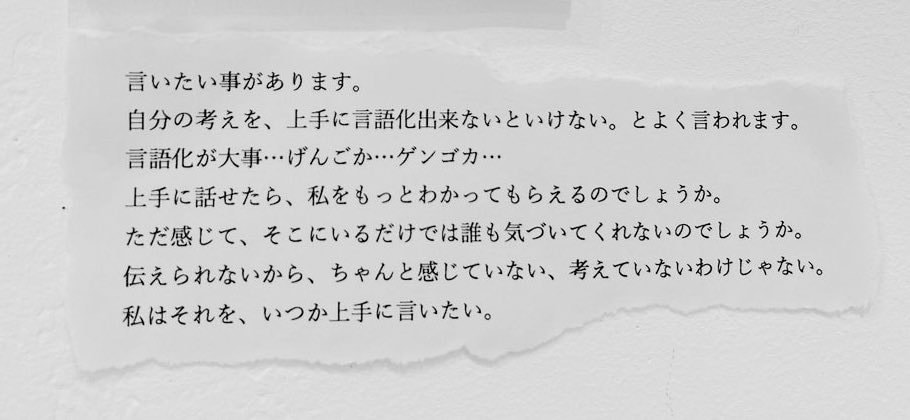 言いたい事があります。
自分の考えを、上手に言語化出来ないといけない。とよく言われます。
言語化が大事…げんごか…ゲンゴカ…
上手に話せたら、私をもっとわかってもらえるのでしょうか。
ただ感じて、そこにいるだけでは誰も気づいてくれないのでしょうか。
伝えられないから、ちゃんと感じていない、考えていないわけじゃない。
私はそれを、いつか上手に言いたい。